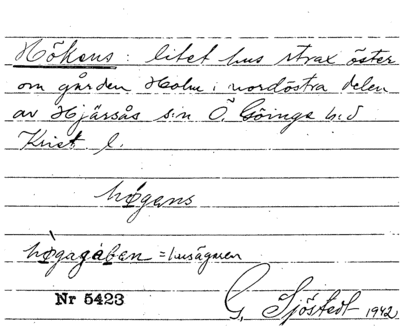 Hökens : litet hus strax öster
om gården Holm i nordöstra delen
av Hjärsås s:n Ö. Göinge h:d
Krist. l.
högens
högagúben = husägaren
Nr 5423
G. Sjöstedt 1942